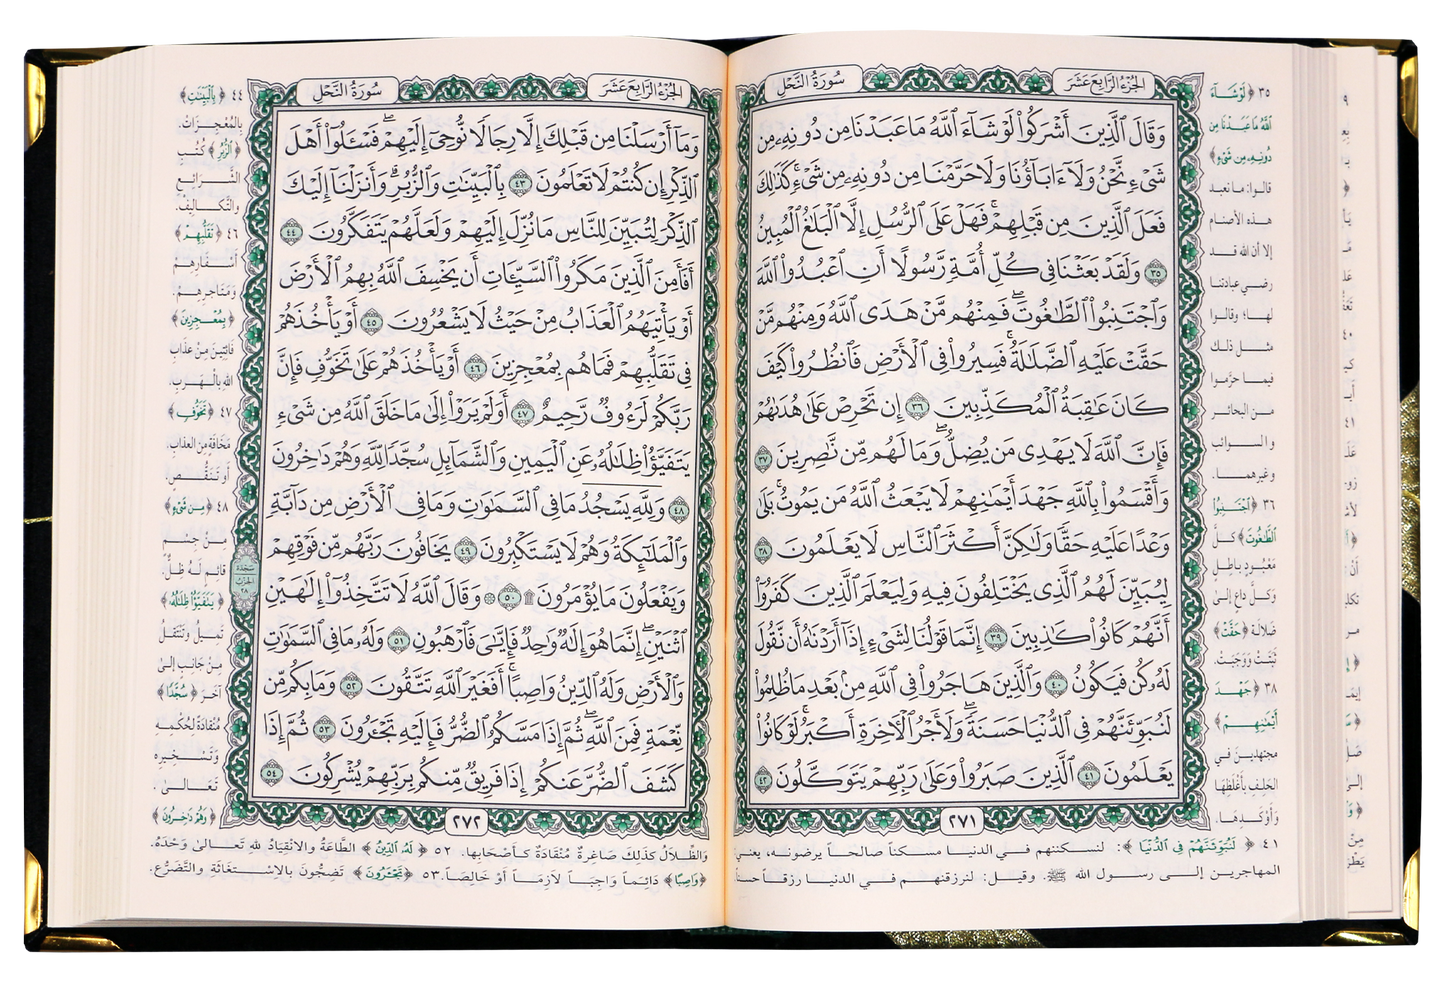 الجُزْءُ الرَّابِعَ عَشَرَ
سُورَةُ النَّحْلِ
وَقَالَ ٱلَّذِينَ أَشْرَكُوا۟ لَوْ شَآءَ ٱللَّهُ مَا عَبَدْنَا مِن دُونِهِۦ مِن
شَىْءٍ نَّحْنُ وَلَآ ءَابَآؤُنَا وَلَا حَرَّمْنَا مِن دُونِهِۦ مِن شَىْءٍ ۚ كَذَٰلِكَ
فَعَلَ ٱلَّذِينَ مِن قَبْلِهِمْ ۚ فَهَلْ عَلَى ٱلرُّسُلِ إِلَّا ٱلْبَلَـٰغُ ٱلْمُبِينُ
٣٥ وَلَقَدْ بَعَثْنَا فِى كُلِّ أُمَّةٍ رَّسُولًا أَنِ ٱعْبُدُوا۟ ٱللَّهَ
وَٱجْتَنِبُوا۟ ٱلطَّـٰغُوتَ ۖ فَمِنْهُم مَّنْ هَدَى ٱللَّهُ وَمِنْهُم مَّنْ
حَقَّتْ عَلَيْهِ ٱلضَّلَـٰلَةُ ۚ فَسِيرُوا۟ فِى ٱلْأَرْضِ فَٱنظُرُوا۟ كَيْفَ
كَانَ عَـٰقِبَةُ ٱلْمُكَذِّبِينَ ٣٦ إِن تَحْرِصْ عَلَىٰ هُدَىٰهُمْ
فَإِنَّ ٱللَّهَ لَا يَهْدِى مَن يُضِلُّ ۖ وَمَا لَهُم مِّن نَّـٰصِرِينَ ٣٧
وَأَقْسَمُوا۟ بِٱللَّهِ جَهْدَ أَيْمَـٰنِهِمْ ۙ لَا يَبْعَثُ ٱللَّهُ مَن يَمُوتُ ۚ بَلَىٰ
وَعْدًا عَلَيْهِ حَقًّا وَلَـٰكِنَّ أَكْثَرَ ٱلنَّاسِ لَا يَعْلَمُونَ ٣٨
لِيُبَيِّنَ لَهُمُ ٱلَّذِى يَخْتَلِفُونَ فِيهِ وَلِيَعْلَمَ ٱلَّذِينَ كَفَرُوٓا۟
أَنَّهُمْ كَانُوا۟ كَـٰذِبِينَ ٣٩ إِنَّمَا قَوْلُنَا لِشَىْءٍ إِذَآ أَرَدْنَـٰهُ أَن نَّقُولَ
لَهُۥ كُن فَيَكُونُ ٤٠ وَٱلَّذِينَ هَاجَرُوا۟ فِى ٱللَّهِ مِنۢ بَعْدِ مَا ظُلِمُوا۟
لَنُبَوِّئَنَّهُمْ فِى ٱلدُّنْيَا حَسَنَةً ۖ وَلَأَجْرُ ٱلْـَٔاخِرَةِ أَكْبَرُ ۚ لَوْ كَانُوا۟
يَعْلَمُونَ ٤١ ٱلَّذِينَ صَبَرُوا۟ وَعَلَىٰ رَبِّهِمْ يَتَوَكَّلُونَ ٤٢
٢٧١
٣٥ ﴿لَوْ شَآءَ
ٱللَّهُ مَا عَبَدْنَا مِن
دُونِهِۦ مِن شَىْءٍ﴾
قالوا: ما نعبد
هذه الأصنام
إلا أن الله قد
رضي عبادتنا
لها؛ وقالوا
مثل ذلك
فيما حرّموا
من البحائر
والسوائب
وغيرهما.
٣٦ ﴿ٱجْتَنِبُوا۟
ٱلطَّـٰغُوتَ﴾ كلَّ
مَعْبُودٍ باطِلٍ
وَكلَّ داعٍ إلى
ضَلالة ﴿حَقَّتْ﴾
ثَبَتَتْ وَوَجَبَتْ.
٣٨ ﴿جَهْدَ
أَيْمَـٰنِهِمْ﴾
مجتهدينَ في
الحَلِفِ بِأَغْلَظِهَا
وَأَوْكَدِهَا.
٤١ ﴿لَنُبَوِّئَنَّهُمْ فِى ٱلدُّنْيَا﴾: لنسكننهم في الدنيا مسكناً صالحاً يرضونه، يعني:
المهاجرين إلى رسول الله ﷺ. وقيل: لنرزقنهم في الدنيا رزقاً حسناً
الجُزْءُ الرَّابِعَ عَشَرَ
سُورَةُ النَّحْلِ
وَمَآ أَرْسَلْنَا مِن قَبْلِكَ إِلَّا رِجَالًا نُّوحِىٓ إِلَيْهِمْ ۖ فَسْـَٔلُوٓا۟ أَهْلَ
ٱلذِّكْرِ إِن كُنتُمْ لَا تَعْلَمُونَ ٤٣ بِٱلْبَيِّنَـٰتِ وَٱلزُّبُرِ ۗ وَأَنزَلْنَآ إِلَيْكَ
ٱلذِّكْرَ لِتُبَيِّنَ لِلنَّاسِ مَا نُزِّلَ إِلَيْهِمْ وَلَعَلَّهُمْ يَتَفَكَّرُونَ ٤٤
أَفَأَمِنَ ٱلَّذِينَ مَكَرُوا۟ ٱلسَّيِّـَٔاتِ أَن يَخْسِفَ ٱللَّهُ بِهِمُ ٱلْأَرْضَ
أَوْ يَأْتِيَهُمُ ٱلْعَذَابُ مِنْ حَيْثُ لَا يَشْعُرُونَ ٤٥ أَوْ يَأْخُذَهُمْ
فِى تَقَلُّبِهِمْ فَمَا هُم بِمُعْجِزِينَ ٤٦ أَوْ يَأْخُذَهُمْ عَلَىٰ تَخَوُّفٍ فَإِنَّ
رَبَّكُمْ لَرَءُوفٌ رَّحِيمٌ ٤٧ أَوَلَمْ يَرَوْا۟ إِلَىٰ مَا خَلَقَ ٱللَّهُ مِن شَىْءٍ
يَتَفَيَّؤُا۟ ظِلَـٰلُهُۥ عَنِ ٱلْيَمِينِ وَٱلشَّمَآئِلِ سُجَّدًا لِّلَّهِ وَهُمْ دَٰخِرُونَ
٤٨ وَلِلَّهِ يَسْجُدُ مَا فِى ٱلسَّمَـٰوَٰتِ وَمَا فِى ٱلْأَرْضِ مِن دَآبَّةٍ
وَٱلْمَلَـٰٓئِكَةُ وَهُمْ لَا يَسْتَكْبِرُونَ ٤٩ يَخَافُونَ رَبَّهُم مِّن فَوْقِهِمْ
وَيَفْعَلُونَ مَا يُؤْمَرُونَ ۩ ٥٠ ۞ وَقَالَ ٱللَّهُ لَا تَتَّخِذُوٓا۟ إِلَـٰهَيْنِ
ٱثْنَيْنِ ۖ إِنَّمَا هُوَ إِلَـٰهٌ وَٰحِدٌ ۖ فَإِيَّـٰىَ فَٱرْهَبُونِ ٥١ وَلَهُۥ مَا فِى ٱلسَّمَـٰوَٰتِ
وَٱلْأَرْضِ وَلَهُ ٱلدِّينُ وَاصِبًا ۚ أَفَغَيْرَ ٱللَّهِ تَتَّقُونَ ٥٢ وَمَا بِكُم مِّن
نِّعْمَةٍ فَمِنَ ٱللَّهِ ۖ ثُمَّ إِذَا مَسَّكُمُ ٱلضُّرُّ فَإِلَيْهِ تَجْـَٔرُونَ ٥٣ ثُمَّ إِذَا
كَشَفَ ٱلضُّرَّ عَنكُمْ إِذَا فَرِيقٌ مِّنكُم بِرَبِّهِمْ يُشْرِكُونَ ٥٤
٢٧٢
٤٤ ﴿بِٱلْبَيِّنَـٰتِ﴾
بِالمُعْجِزَاتِ.
﴿ٱلزُّبُرِ﴾ كُتُبِ
الشَّرَائِعِ
والتَّكَالِيفِ.
٤٦ ﴿تَقَلُّبِهِمْ﴾
أَسْفَارِهِمْ
وَمَتَاجِرِهِمْ.
﴿بِمُعْجِزِينَ﴾
فَائِتِينَ مِنْ عَذَابِ
اللهِ بِالْهَرَبِ.
٤٧ ﴿تَخَوُّفٍ﴾
مَخَافَةٍ مِنَ العذابِ.
أَوْ تَنَقُّصٍ.
٤٨ ﴿مِن شَىْءٍ﴾
مِنْ جِسْمٍ
قائِمٍ لَهُ ظِلٌّ.
﴿يَتَفَيَّؤُا۟ ظِلَـٰلُهُۥ﴾
تَمِيلُ وتَنْتَقِلُ
مِنْ جَانِبٍ إلى
آخَرَ ﴿سُجَّدًا﴾
مُنْقَادَةً لِحُكْمِهِ
وَتَسْخِيرِهِ
تَعَالى
﴿وَهُمْ دَٰخِرُونَ﴾
سَجْدَة
وَالظِّلالُ كَذلِكَ صَاغِرةٌ مُنْقَادَةٌ كَأَصْحَابِهَا. ٥٢ ﴿لَهُ ٱلدِّينُ﴾ الطَّاعَةُ وَالانْقِيَادُ للهِ تَعَالى وَحْدَهُ.
﴿وَاصِبًا﴾ دَائِماً وَاجِبَاً لَازِمَاً أَوْ خَالِصَاً. ٥٣ ﴿تَجْـَٔرُونَ﴾ تَضِجُّونَ بِالاسْتِغَاثَةِ والتَّضَرُّعِ.